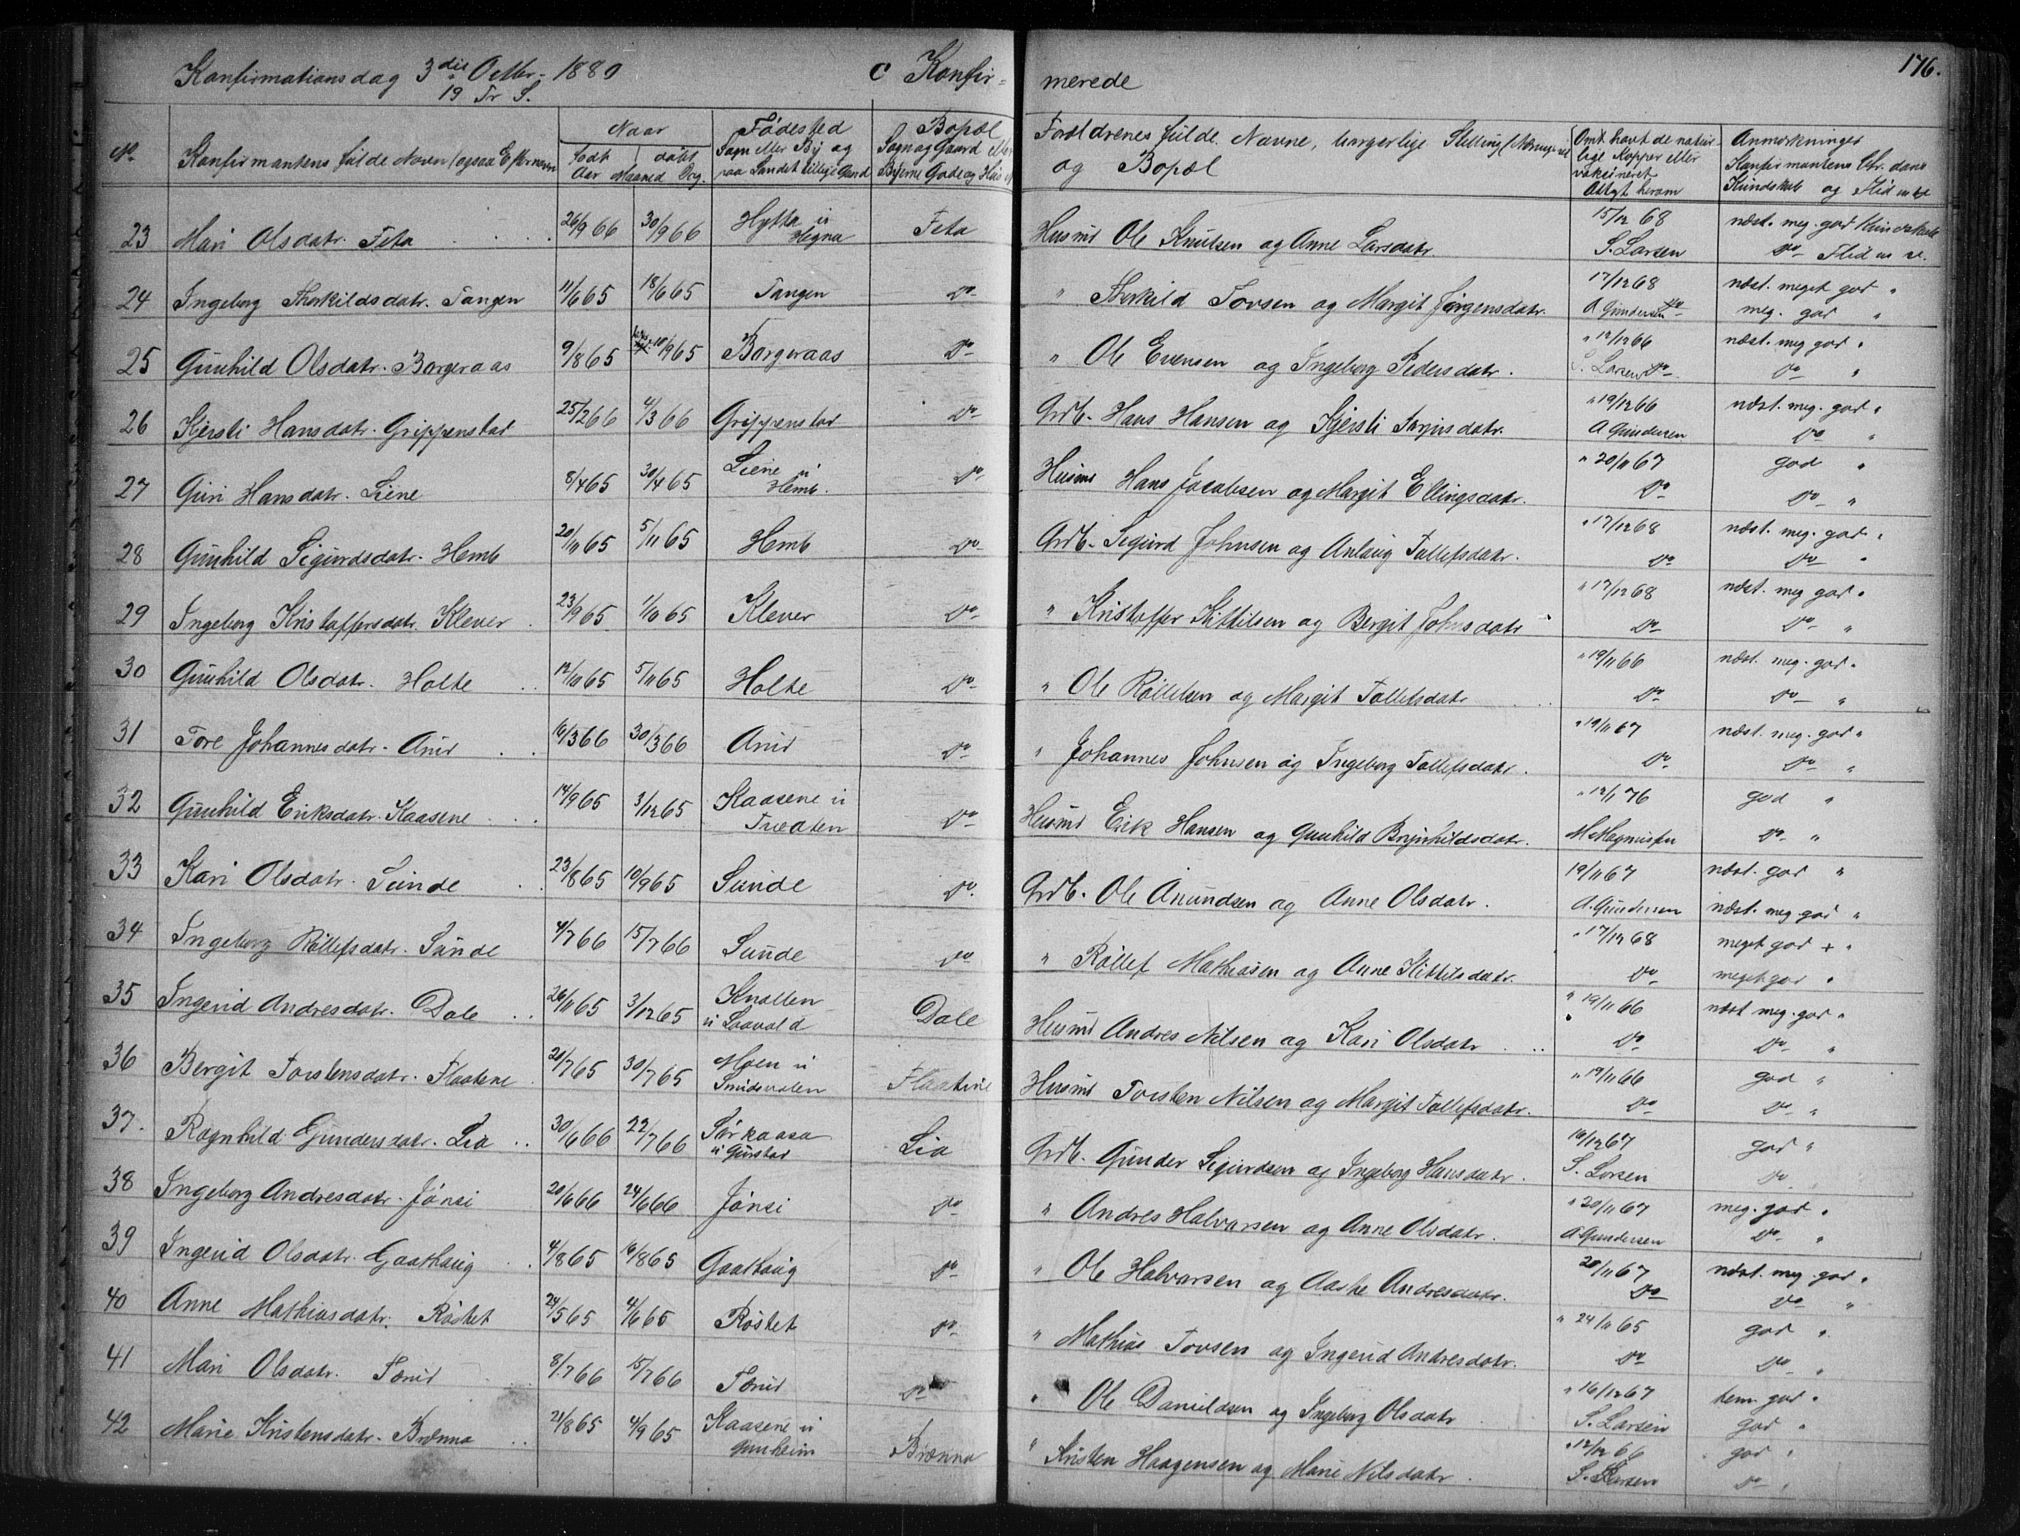 Konfirmationsdag 3die Octbr. 1880 C Konfir- merede 176.
19 Tr S.
No. Konfirmantens fulde Navn (ogsaa Efternavn Naar født døbt Aar Maaned Dag. Fødested Sogn eller By og paa Landet tillige Gaard Bopæl Sogn og Gaard eller Byerne Gade og Hus No Forældrenes fulde Navne, borgerlige Stilling (Næringsvei og Bopæl Om havt de naturlige Kopper eller vaksineret Attest herom Anmerkninger Konfirmantens Chr.doms Kundskab og Flid m. v.
23 Mari Olsdatr. Feta 26/9 66 30/9 66 Hytta u Hegna Feta Husmd Ole Knutsen og Anne Larsdatr. 15/12 68 S. Larsen næst. meg. god Kundskab Do Flid
24 Ingeborg Thorkildsdatr. Tangen 11/6 65 18/6 65 Tangen Do " Thorkild Tovsen og Margit Jørgensdatr. 17/12 68 A Gundersen næst. meget god " meg. god "
25 Gunhild Olsdatr. Borgeraas 9/8 65 10/9 65 Borgeraas Do " Ole Evensen og Ingeborg Pedersdatr. " 12/12 66 S. Larsen Do næst. meg god " Do "
26 Kjersti Hansdatr. Grippenstad 25/2 66 4/3 66 Grippenstad Do Grdb. Hans Hansen og Kjersti " 19/12 66 A Gundersen næst. meg. god " Do "
27 Guri Hansdatr. Liene 8/4 65 30/4 65 Liene u Hemb. Do Husmd Hans Jacobsen og Margit Ellingsdatr. " 20/11 67 Do god " Do "
28 Gunhild Sigurdsdatr. Hemb 20/11 65 5/11 65 Hemb Do Grdb. Sigurd Johnsen og Anlaug Tollefsdatr. " 17/12 68 Do næst. meg. god " Do "
29 Ingeborg Kristoffersdatr. Klever 23/9 65 1/10 65 Klever Do " Kristoffer Kittilsen og Bergit Johnsdatr " 17/12 68 Do næst. meg god " Do "
30 Gunhild Olsdatr. Holte 12/10 65 5/11 65 Holte Do " Ole Røllefsen og Margit Tollefsdatr " 19/11 66 Do næst. meg. god " Do "
31 Tore Johannesdatr. Arud 16/3 66 30/3 66 Arud Do " Johannes Johnsen og Ingeborg Tollefsdatr. " 19/11 67 Do næst. meg. god " Do "
32 Gunhild Eriksdatr. Kaasene 14/9 65 3/12 65 Kaasene u Tveaten Do Husmd Erik Hansen og Gunhild Brynhildsdatr. " 12/1 76 M Magnussen god " Do "
33 Kari Olsdatr. Sunde 23/8 65 10/9 65 Sunde Do. Grdb. Ole Anundsen og Anne Olsdatr. 19/11 67 A. Gundersen næst. god " næst. meg god "
34 Ingeborg Røllefsdatr. Sunde 4/7 66 15/7 66 Sunde Do " Røllef Mathissen og Anne Kittilsdatr. " 17/12 68 Do meget god + " meget god "
35 Ingerid Andresdatr. Dale 26/11 65 3/12 65 Knatten u Saavold Dale Husmd Andres Nilsen og Kari Olsdatr " 19/11 66 Do næst meg. god " Do "
36 Bergit Torstensdatr. Flaatene 20/7 65 30/7 65 Moen u Flaatene Husmd Torsten Nilsen og Margit Tollefsdatr. " 19/11 66 Do god " Do "
37. Ragnhild Gundersdatr. Lia 30/6 66 22/7 66 Sørkaasa u Gurstad Lia Grdb. Gunder Sigurdsen og Ingeborg Hansdatr. 16/12 67 S. Larsen god " Do
38 Ingeborg Andresdatr. Jønsi 20/6 66 24/6 66 Jønsi Do " Andres Halvorsen og Anne Olsdatr. " 20/11 67 A Gundersen meg. god " Do "
39 Ingerid Olsdatr. Gaathaug 4/8 65 16/8 65 Gaathaug Do " Ole Halvorsen og Aaste Andresdatr. 20/11 67 Do næst. meg. god " Do "
40 Anne Mathiasdatr. Røstet 24/5 65 4/6 65 Røstet Do " Mathias Tovsen og Ingerid Andresdatr. " 24/11 65 Do god " Do "
41 Mari Olsdatr. Tønid 8/7 66 15/7 66 Tønid Do " Ole Danieldsen og Ingeborg Olsdatr " 16/12 67 S. Larsen tem. god " god "
42 Marie Kristensdatr. Brænna 21/8 65 4/9 65 Kaasene u Gunheim Brænna " Kristen Haagensen og Marie Nilsdatr. " 12/12 66 S. Larsen god " Do "